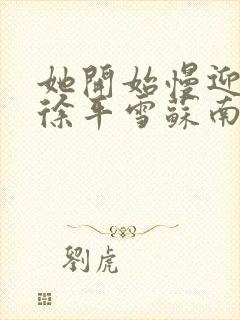 她開始慢迎
徐年雪蘇南
劉虎